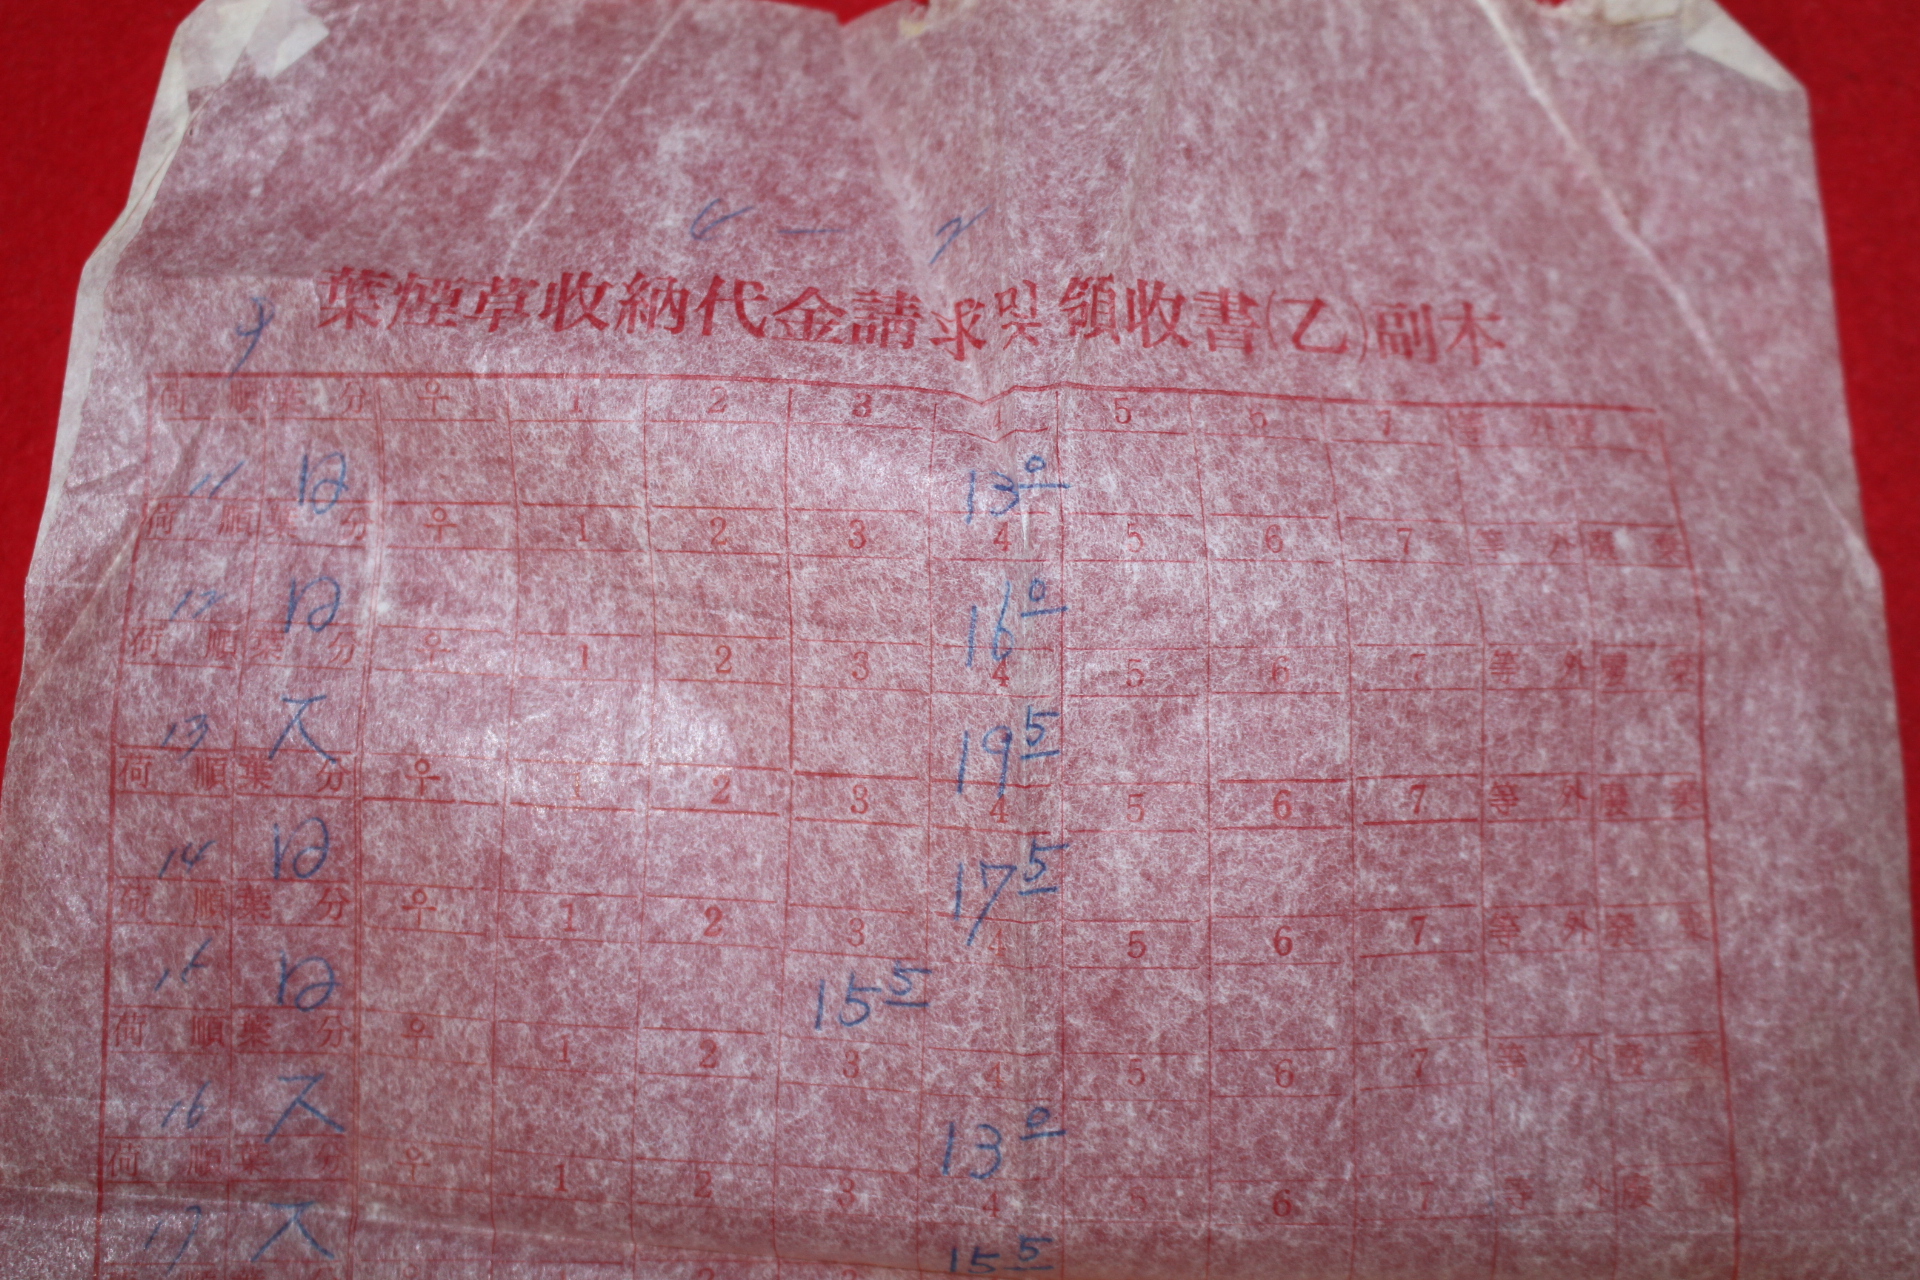 6 — 7
葉煙草收納代金請求및領收書(乙)副本
荷順 葉分 우 1 2 3 4 5 6 7 等外
11 13 0
荷順 葉分 우 1 2 3 4 5 6 7 等外 廢葉
12 16 0
荷順 葉分 우 1 2 3 4 5 6 7 等外 廢葉
13 ス 19 5
荷順 葉分 우 1 2 3 4 5 6 7 等外 廢葉
14 17 5
荷順 葉分 우 1 2 3 4 5 6 7 等外 廢葉
15 15 5
荷順 葉分 우 1 2 3 4 5 6 7 等外 廢葉
16 ス 13 0
荷順 葉分 우 1 2 3 4 5 6 7 等外 廢葉
17 ス 15 5